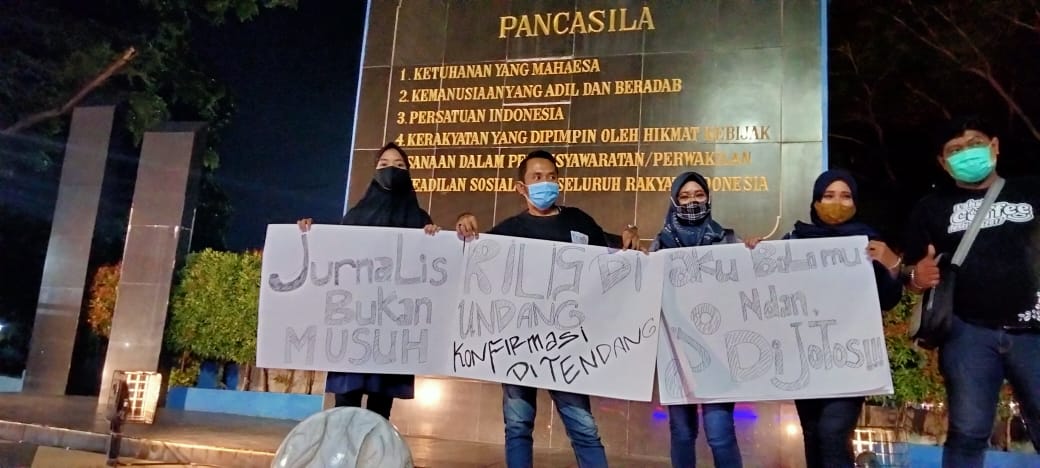 PANCASILA
1. KETUHANAN YANG MAHAESA
2. KEMANUSIAAN YANG ADIL DAN BERADAB
3. PERSATUAN INDONESIA
4. KERAKYATAN YANG DIPIMPIN OLEH HIKMAT KEBIJAK
SANAAN DALAM SYAWARATAN/PERWAKILAN
EADILAN SOSIAL SELURUH RAKYAT INDONESIA
JurnaLis
BUKan
MUSUH
RILIS DI
UNDANG
KonFIrmasi
DITENDANG
aku BiLamu
Ndan,
Jo DiJoTos!!!